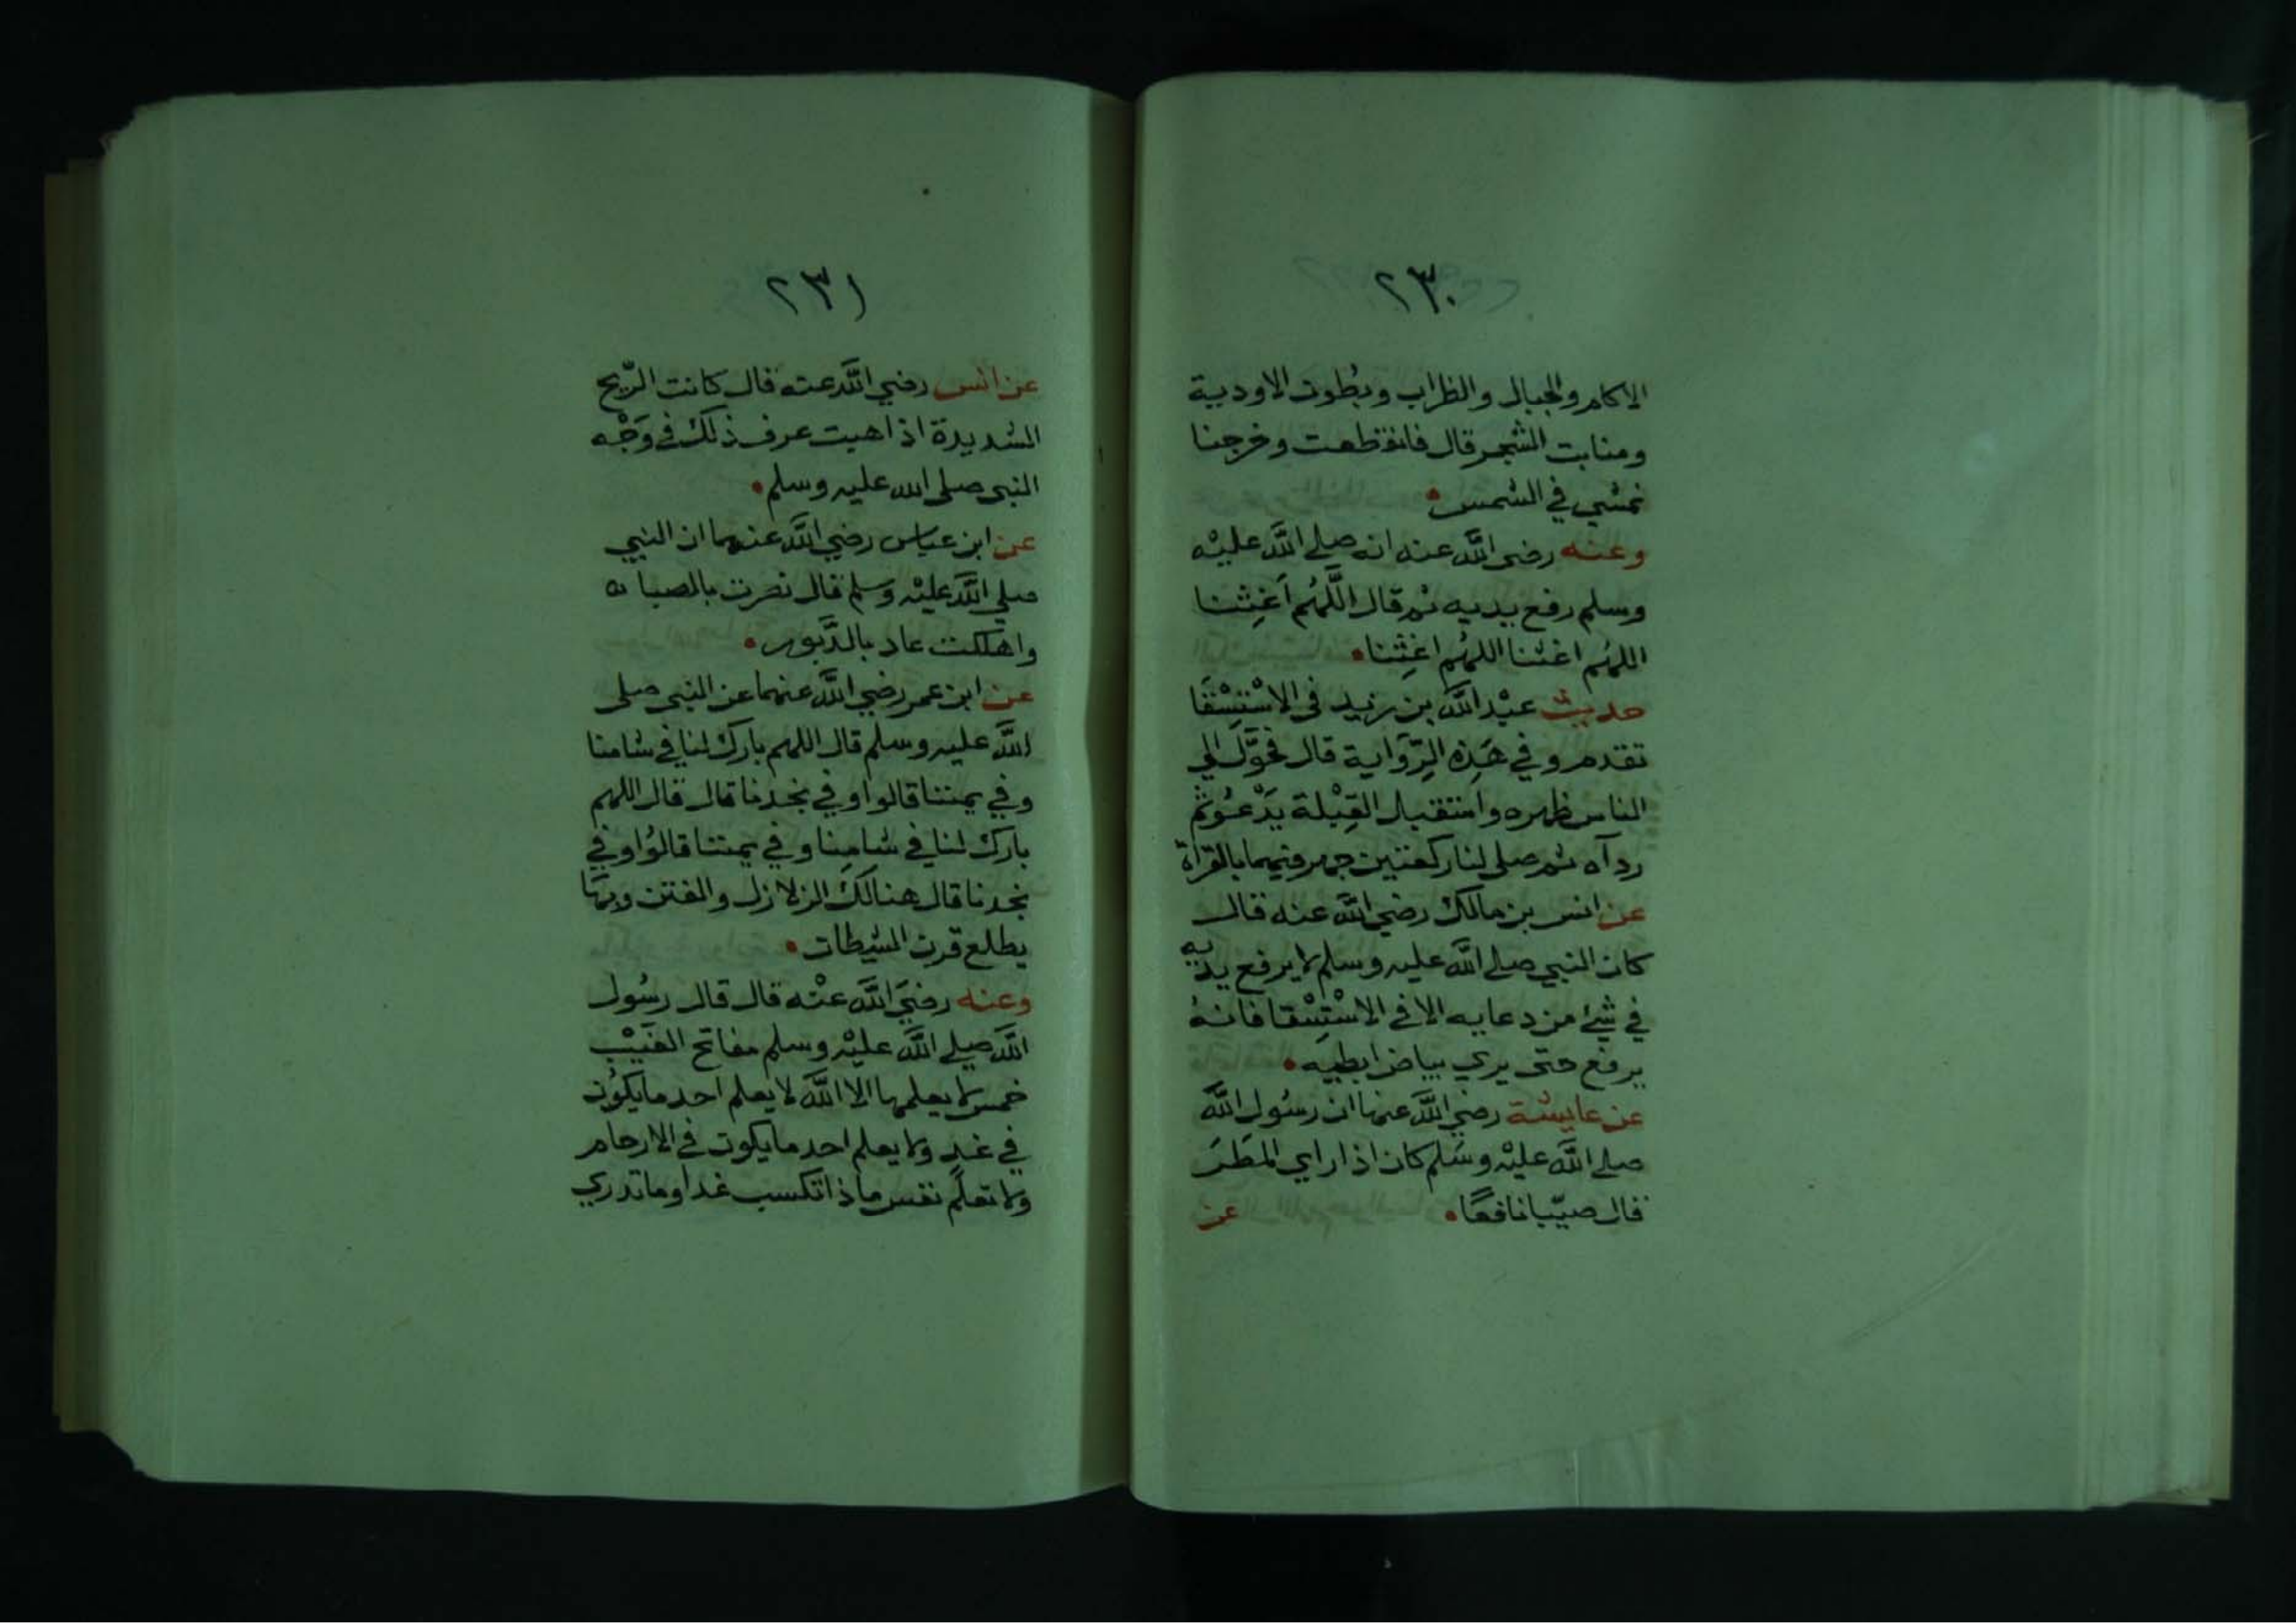 ٢٣٠
الاكام والجبال والظراب وبطون الاودية
ومنابت الشجر قال فانقطعت وخرجنا
نمشي في الشمس
وعنه رضى الله عنه انه صلى الله عليْه
وسلم رفع يديه ثم قال اللَّهُم أَغِثْنا
اللهُم اغثنا اللهُم اغِثنا
حديث عبْد الله بن زيد فى الاسْتِسْقَا
تقدم وفي هَذِه الرِّوَاية قال فحَوَّل الي
الناس ظهره واستقبل القِبْلة يَدْعُو ثم
ردآه ثم صلى لنا ركعتين جهر فيهما بالقراة
عن انس بن مالك رضي الله عنه قال
كان النبي صلى الله عليه وسلم لا يرفع يديه
في شيْ من دعايه الا في الاسْتِسْقا فانهُ
يرفع حتى يري بياض ابطيه
عن عايشة رضي الله عنها ان رسُول الله
صلى الله عليْه وسَلم كان اذا راي المَطَر
قال صيّبا نافعًا عن
٢٣١
عن انس رضي الله عنه قال كانت الرّيح
الشديدة اذا هبت عرف ذلك في وَجْه
النبى صلى الله عليه وسلم
عن ابن عباس رضي الله عنهما ان النبي
صلي الله عليْه وَسلم قال نصرت بالصبا
واهلكت عاد بالدَّبور
عن ابن عمر رضي الله عنهما عن النبى صلى
الله عليه وسلم قال اللهم بارك لنا في شامنا
وفي يمننا قالوا وفي نجدنا قال قال اللهم
بارك لنا في شامِنا وفي يمننا قالُوا وفي
نجدنا قال هنالكَ الزلازل والفتن وبهَا
يطلع قرن الشيطان
وعنه رضيَ الله عنْه قال قال رسُول
الله صلي الله عليْه وسلم مفاتح الغَيْب
خمس لا يعلمها الا الله لا يعلم احد ما يكوُن
في غدٍ ولا يعلم احد ما يكون في الارحام
ولا تعلَم نفس ماذا تكسب غدا وما تدري